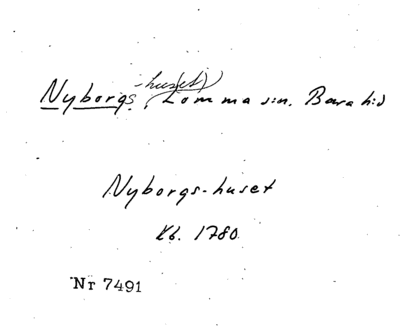 -hus(et)
Nyborgs, Lomma s:n. Bara h:d
Nyborgs-huset
Kb. 1780
Nr 7491